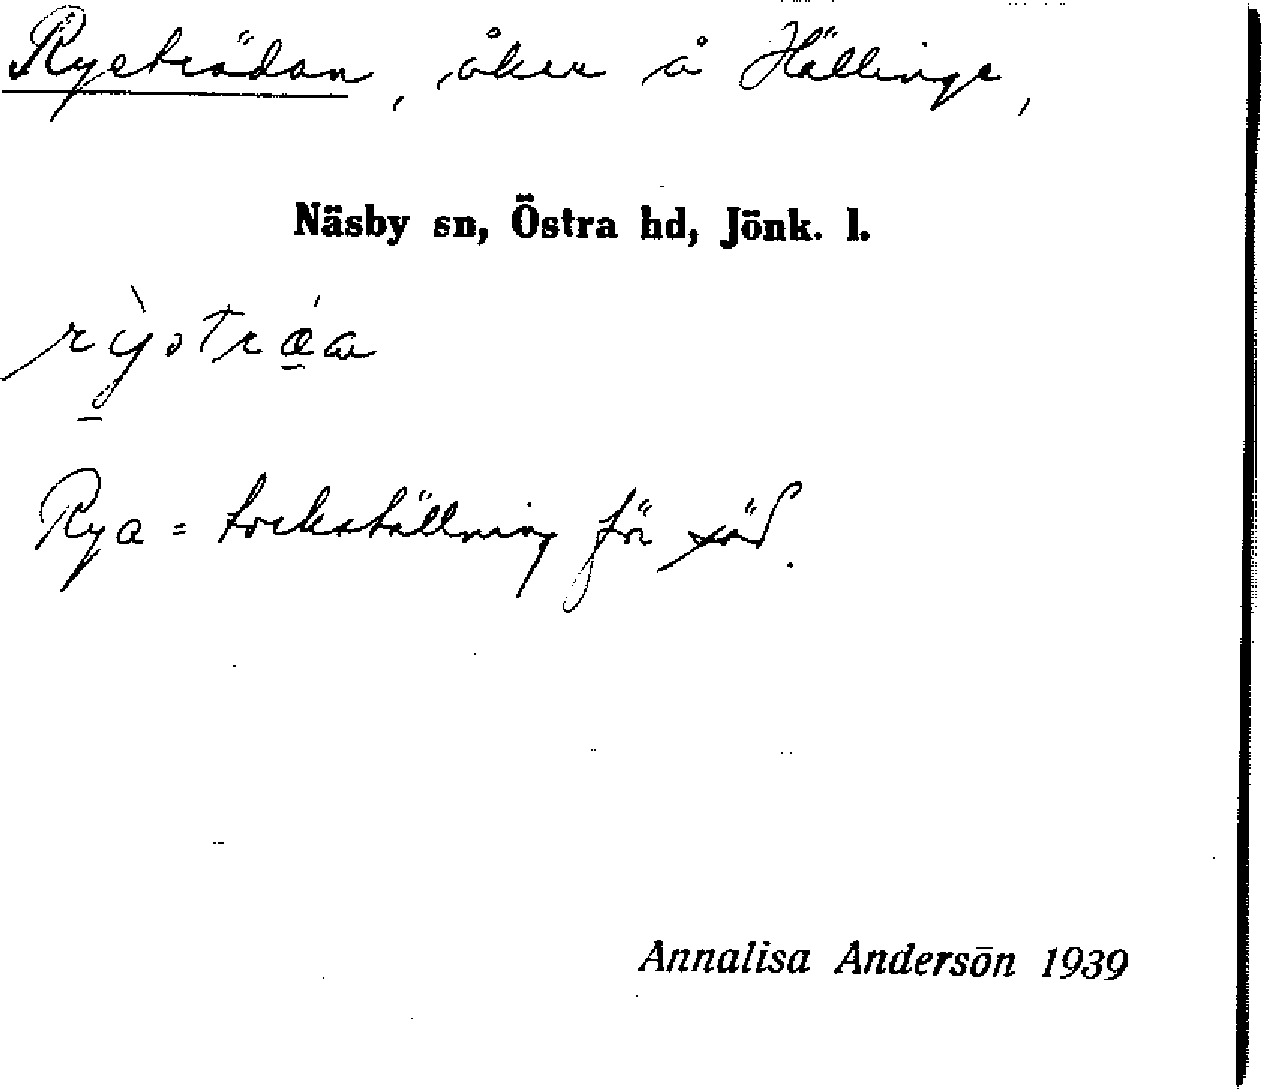 Rysträdan, åker å Hällinge,
Näsby sn, Östra hd, Jönk. l.
rỳstrǽa
Rya = torkställning för säd.
Annalisa Andersōn 1939